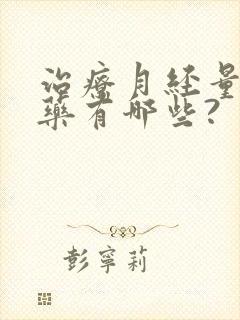 治療月經量
藥有哪些?
彭寧莉